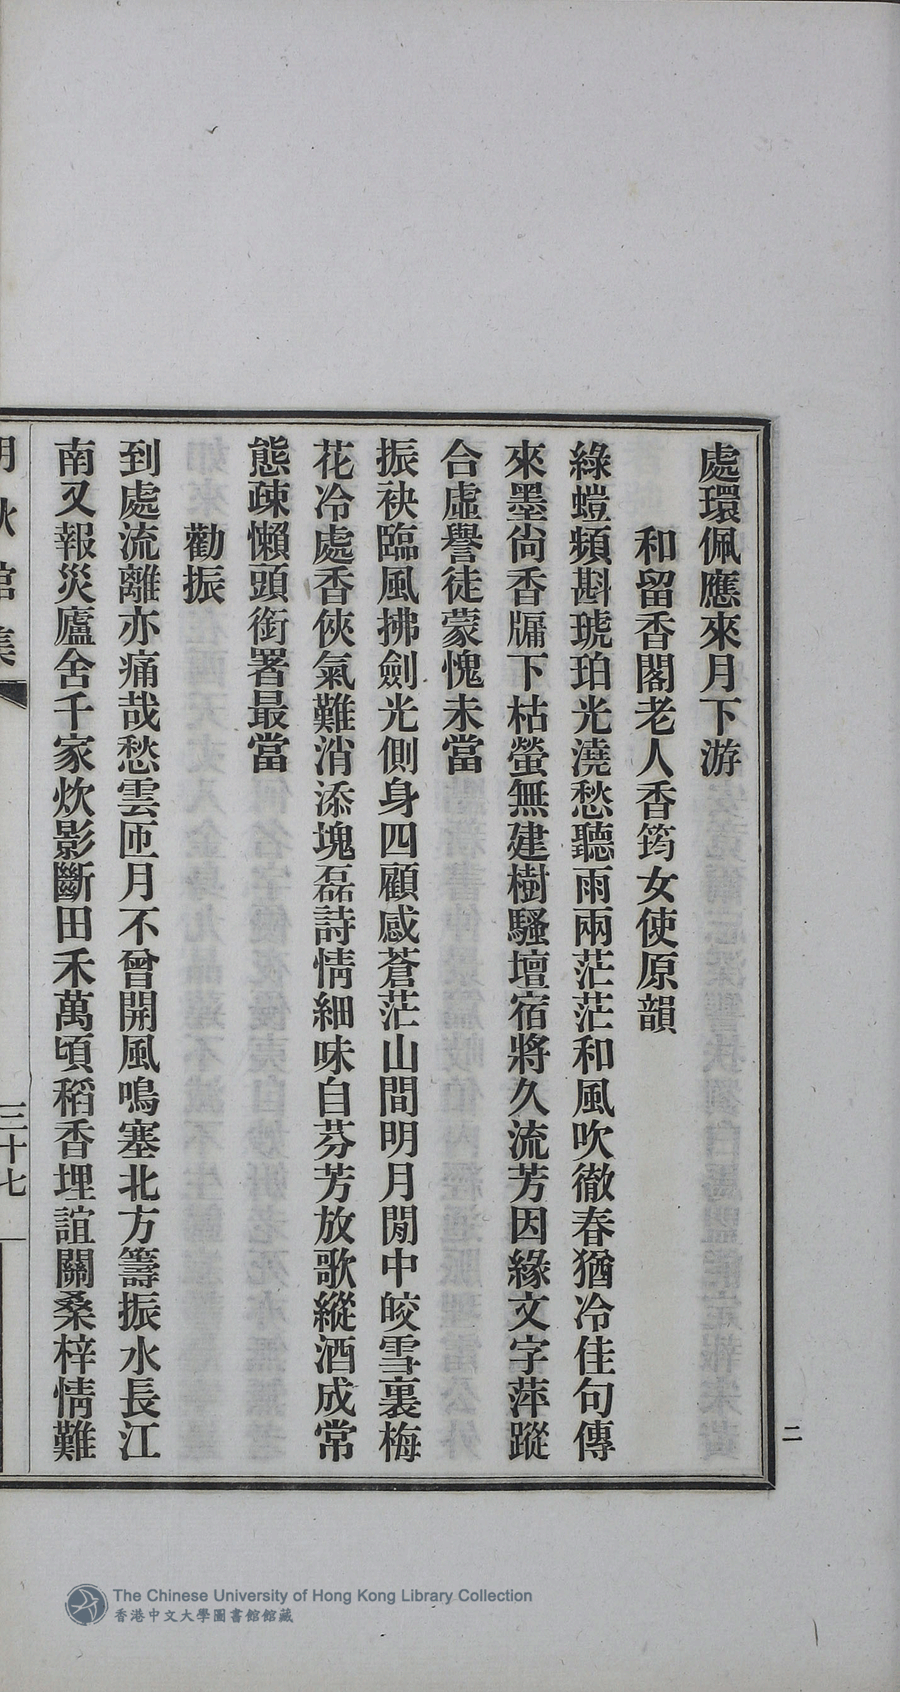 處環佩應來月下游
和留香閣老人香筠女使原韻
綠螘頻斟琥珀光澆愁聽雨兩茫茫和風吹徹春猶冷佳句傳
來墨尙香牖下枯螢無建樹騷壇宿將久流芳因緣文字萍蹤
合虛譽徒蒙愧未當
振袂臨風拂劍光側身四顧感蒼茫山間明月閒中皎雪裏梅
花冷處香俠氣難消添塊磊詩情細味自芬芳放歌縱酒成常
態疎懶頭銜署最當
勸振
到處流離亦痛哉愁雲匝月不曾開風鳴塞北方籌振水長江
南又報災廬舍千家炊影斷田禾萬頃稻香埋誼關桑梓情難
三十七
二
The Chinese University of Hong Kong Library Collection
香港中文大學圖書館館藏